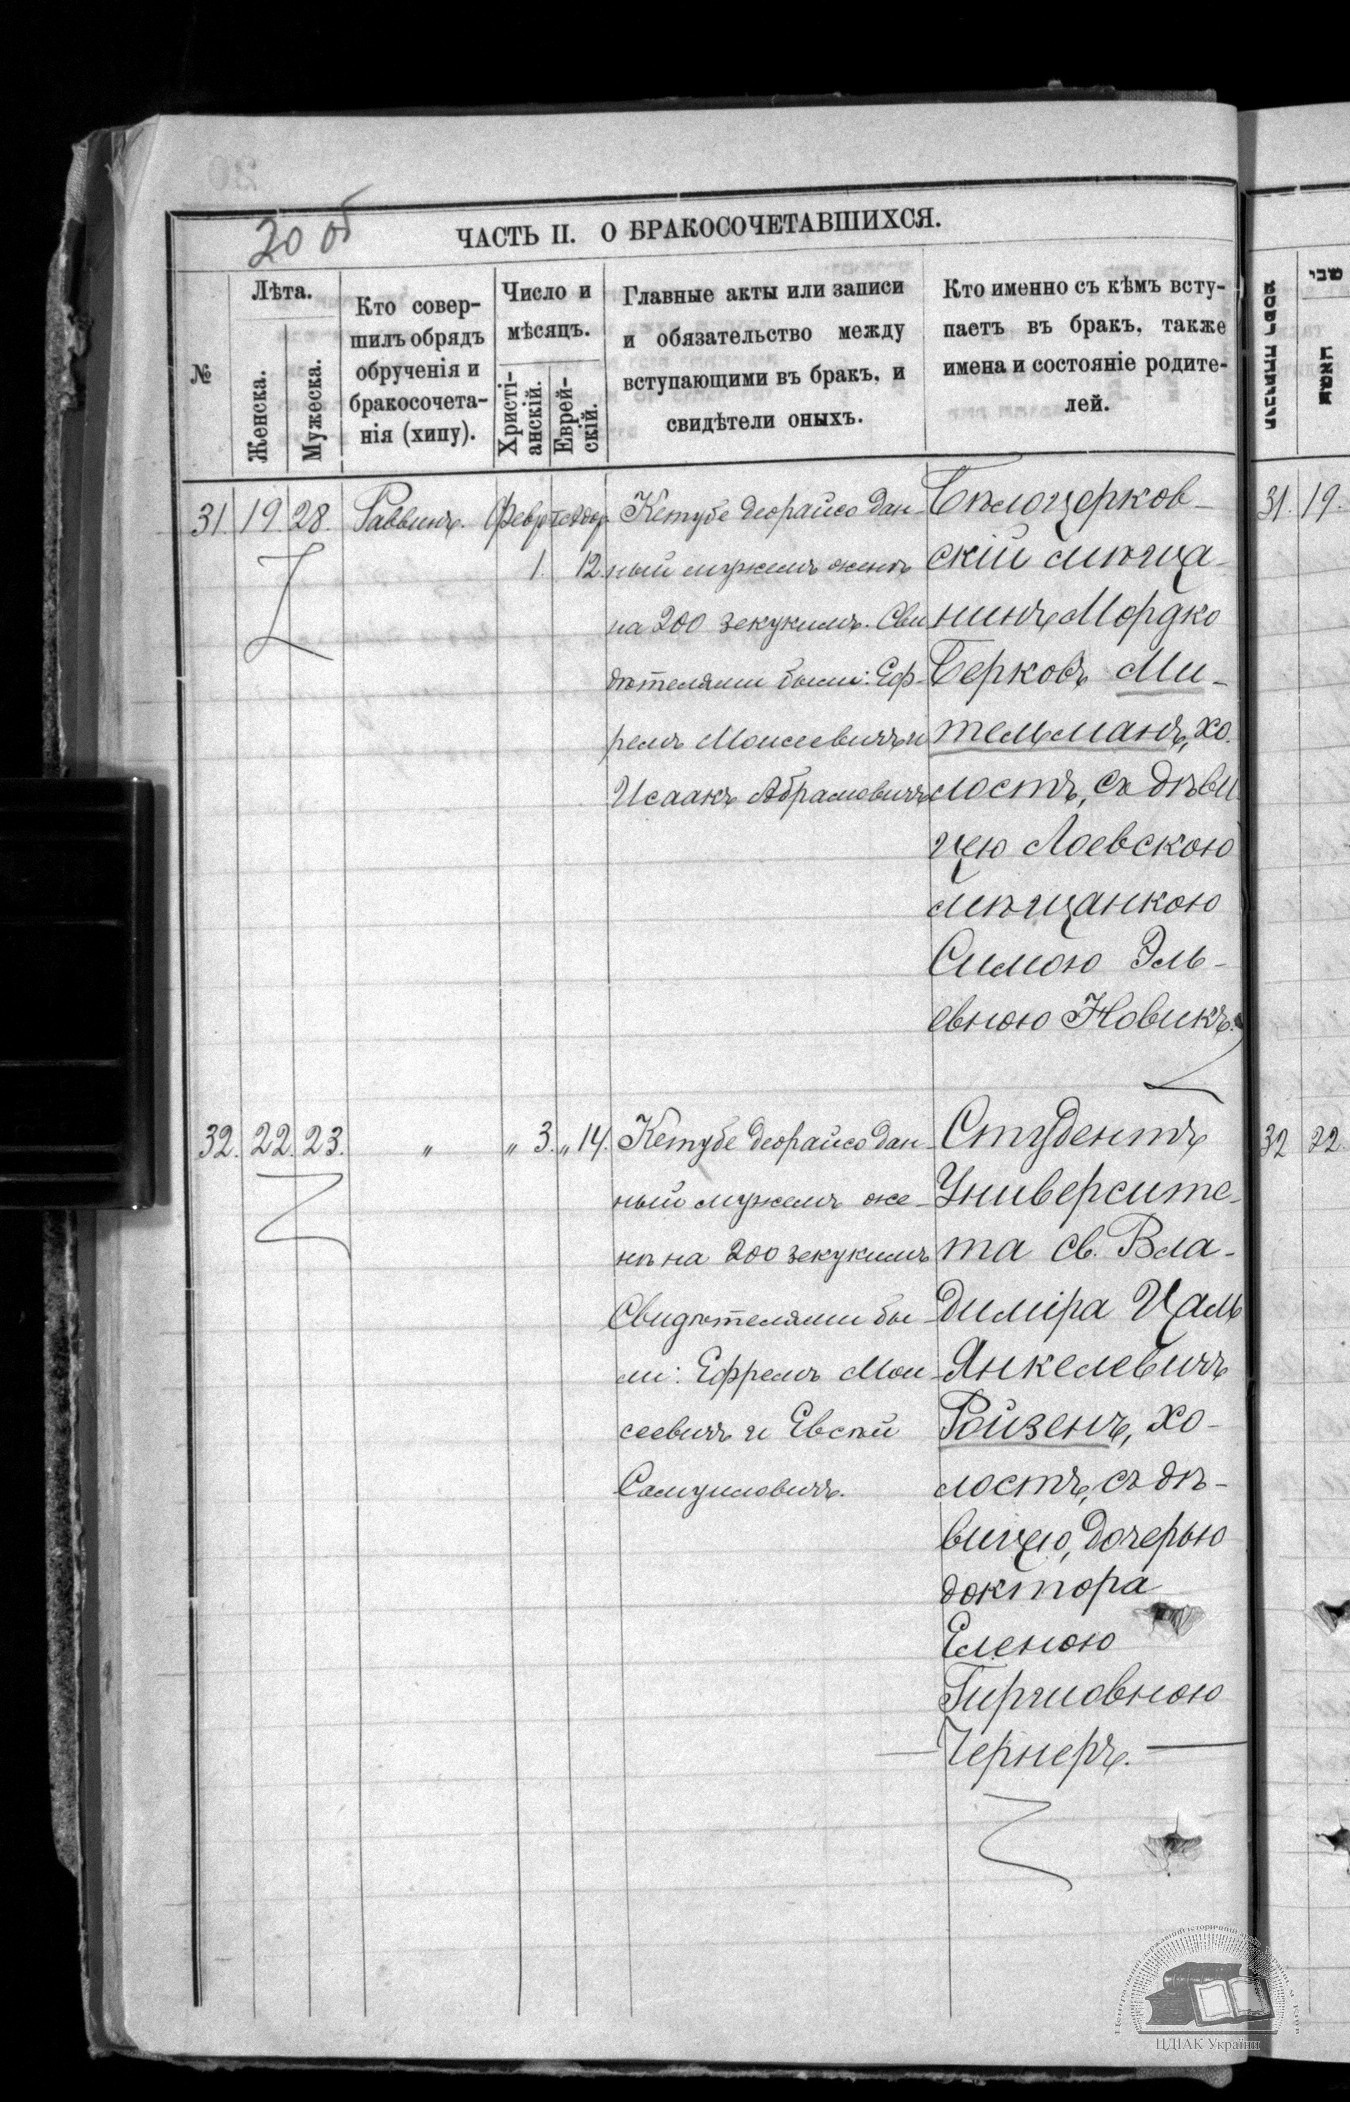 20 об
ЧАСТЬ II. О БРАКОСОЧЕТАВШИХСЯ.
№
Лѣта.
Женска.
Мужеска.
Кто совер-
шилъ обрядъ
обрученія и
бракосочета-
нія (хипу).
Число и
мѣсяцъ.
Христі-
анскій.
Еврей-
скій.
Главные акты или записи
и обязательство между
вступающими въ бракъ, и
свидѣтели оныхъ.
Кто именно съ кѣмъ всту-
паетъ въ бракъ, также
имена и состояніе родите-
лей.
31. 19. 28. Раввинъ. Февр
1. 12
Кетубе деорайсо дан-
ный мужемъ женѣ
на 200 зекукимъ. Сви
дѣтелями были: Еф-
ремъ Моисеевичъ и
Исаакъ Абрамовичъ
Бѣлоцерков-
скій мѣща-
нинъ Мордко
Берковъ Ми-
тельманъ, хо
лостъ, съ дѣви
цею Лоевскою
мѣщанкою
Симою Эль-
евною Новикъ.
32. 22. 23. „ „ 3. „ 14.
Кетубе деорайсо дан-
ный мужемъ же-
нѣ на 200 зекукимъ
Свидѣтелями бы-
ли: Ефремъ Мои-
сеевичъ и Евсѣй
Самуиловичъ.
Студентъ
Университе-
та св. Вла-
димира Цаль
Янкелевичъ
Ройзенъ, хо-
лостъ, съ дѣ-
вицею, дочерью
доктора
Еленою
Гиршовною
Чернеръ.
31. 19.
32 22.
ЦДІАК України